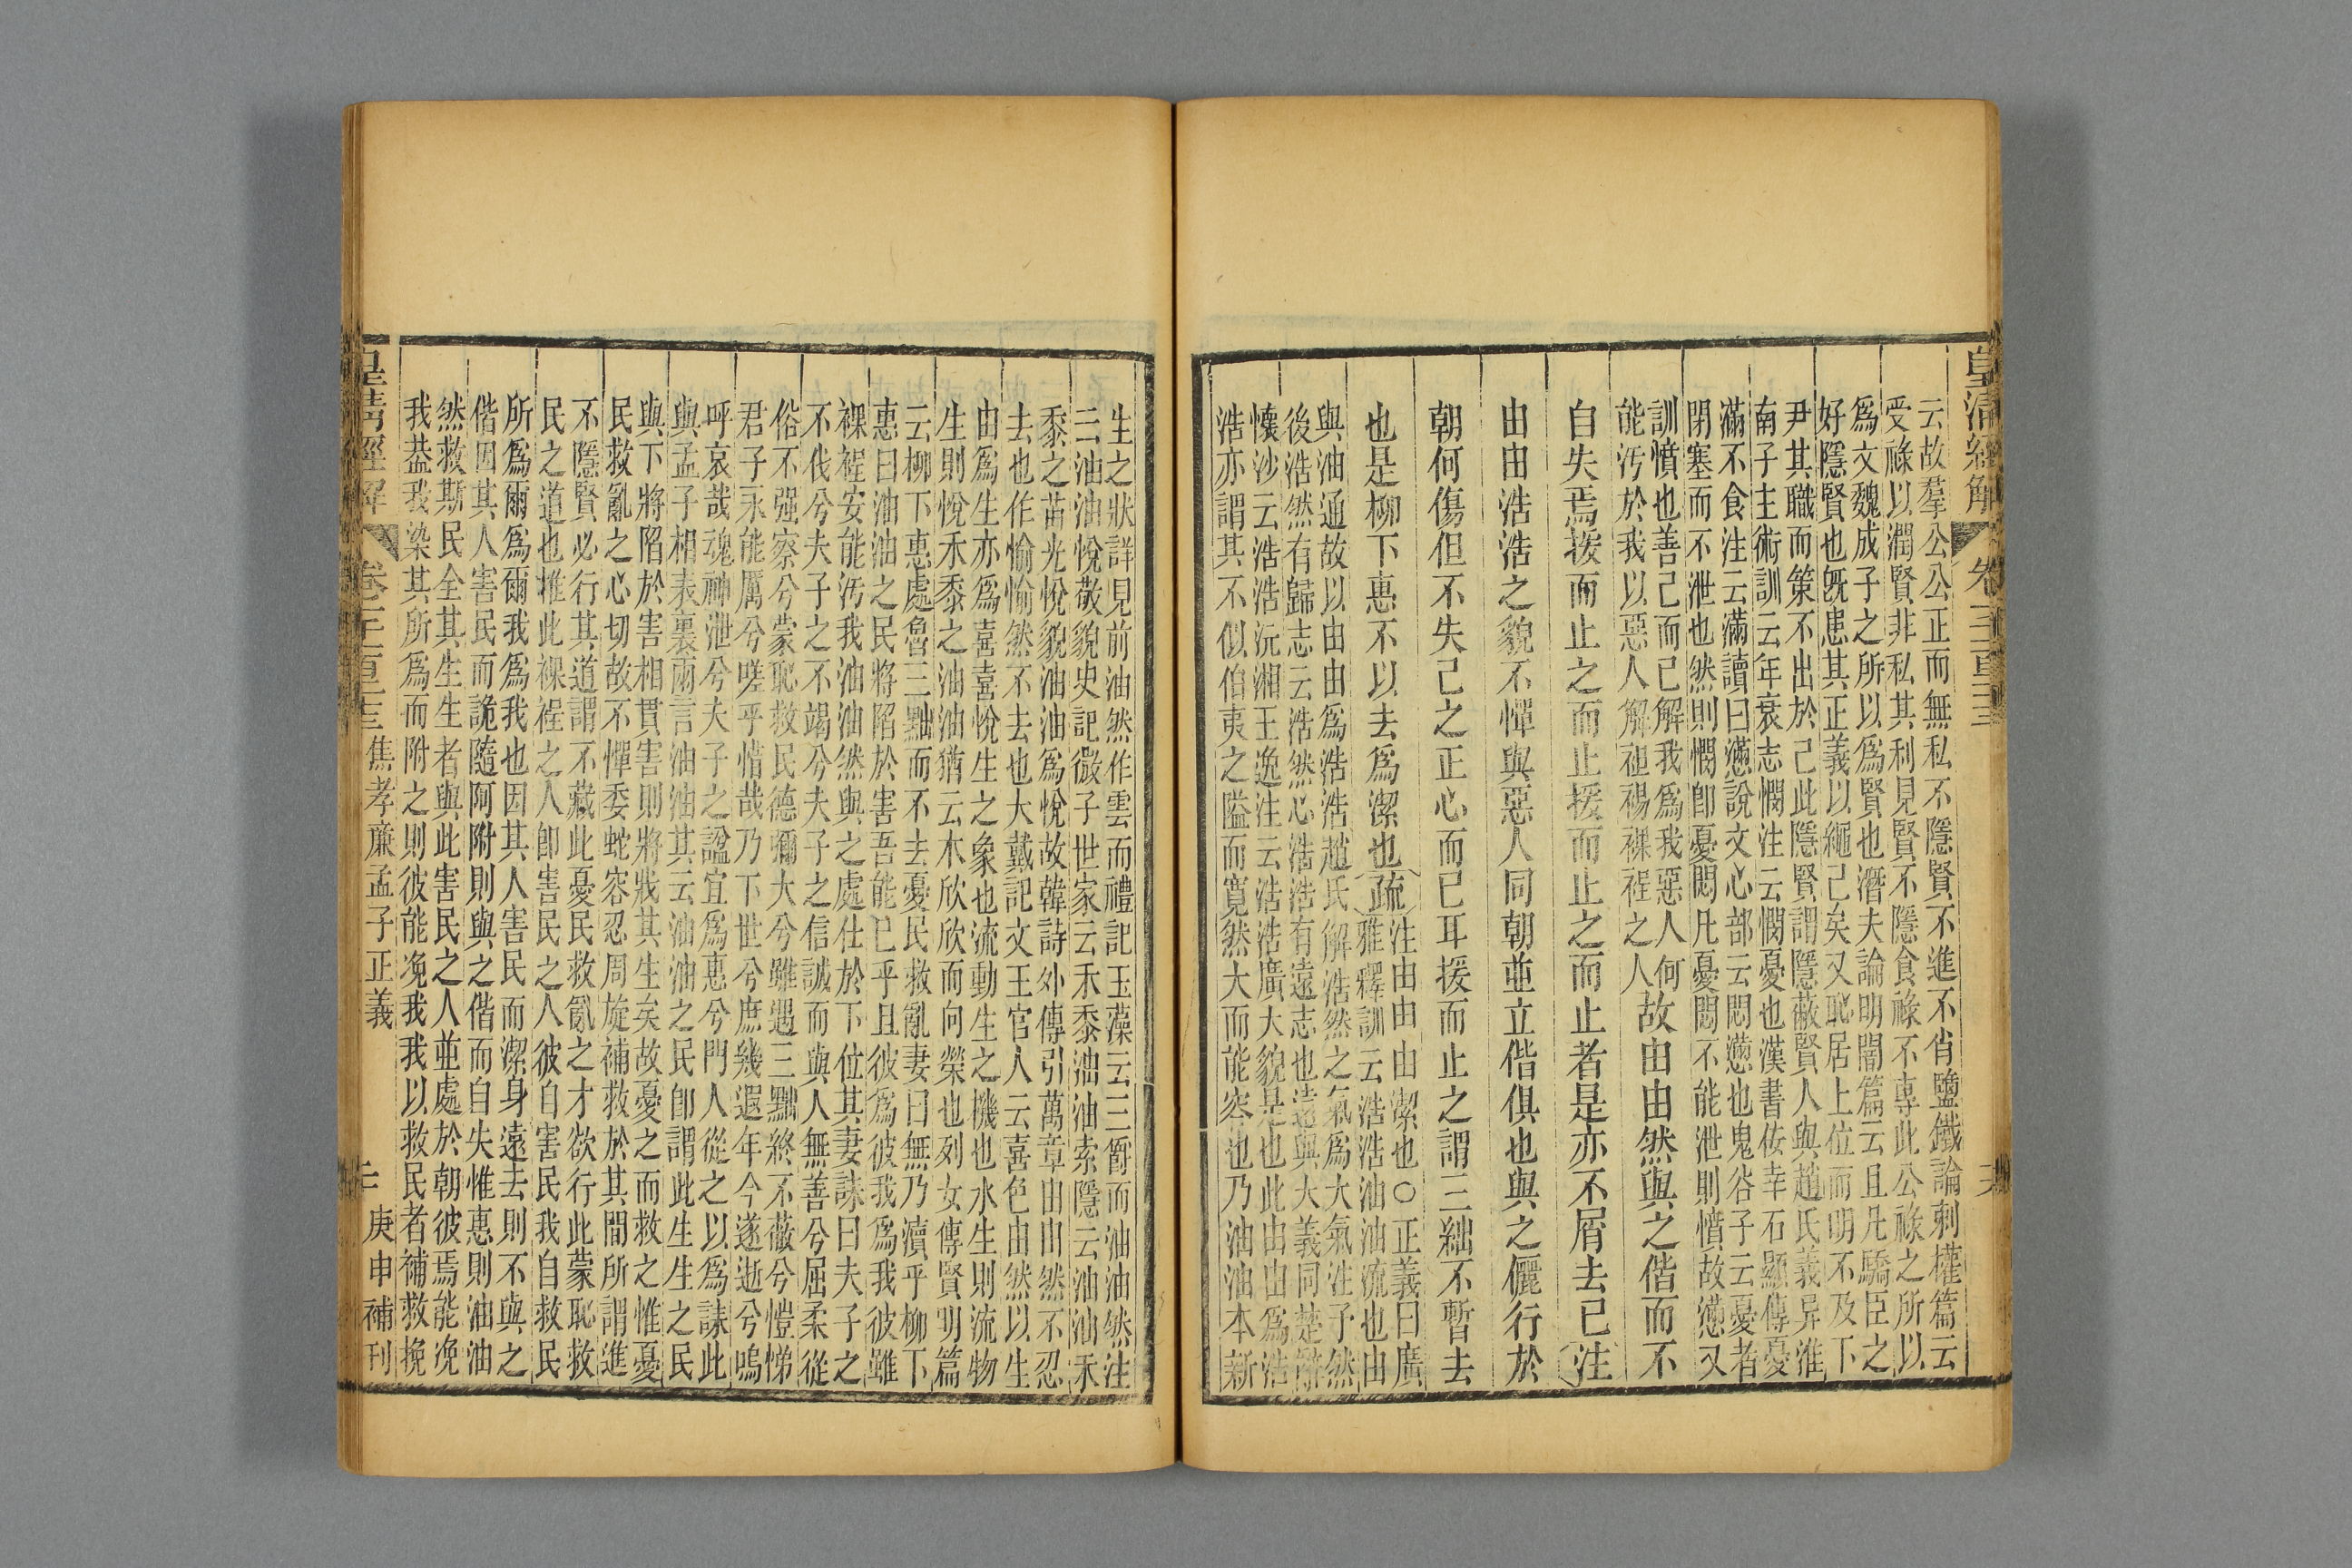 皇清經解 卷千百三 六
云故羣公公正而無私不隱賢不進不肖鹽鐵論刺權篇云
受祿以潤賢非私其利見賢不隱食祿不專此公祿之所以
爲文魏成子之所以爲賢也潛夫論明闇篇云且凡驕臣之
好隱賢也旣患其正義以繩己矣又恥居上位而明不及下
尹其職而策不出於己此隱賢謂隱蔽賢人與趙氏義异淮
南子主術訓云年衰志憫注云憫憂也漢書佞幸石顯傳憂
滿不食注云滿讀曰懣說文心部云悶懣也鬼谷子云憂者
閉塞而不泄也然則憫卽憂悶凡憂悶不能泄則憤故懣又
訓憤也善己而己解我爲我惡人何
能汚於我以惡人解袒裼裸裎之人
故由由然與之偕而不
自失焉援而止之而止援而止之而止者是亦不屑去已注
由由浩浩之貌不憚與惡人同朝並立偕俱也與之儷行於
朝何傷但不失己之正心而已耳援而止之謂三絀不暫去
也是柳下惠不以去爲潔也疏
注由由由潔也○正義曰廣
雅釋訓云浩浩油油流也由
與油通故以由由爲浩浩趙氏解浩然之氣爲大氣注予然
後浩然有歸志云浩然心浩浩有遠志也遠與大義同楚辭
懷沙云浩浩沅湘王逸注云浩浩廣大貌是也此由由爲浩
浩亦謂其不似伯夷之隘而寬然大而能容也乃油油本新
生之狀詳見前油然作雲而禮記玉藻云三爵而油油然注
云油油悅敬貌史記微子世家云禾黍油油索隱云油油禾
黍之苗光悅貌油油爲悅故韓詩外傳引萬章由由然不忍
去也作愉愉然不去也大戴記文王官人云喜色由然以生
由爲生亦爲喜喜悅生之象也流動生之機也水生則流物
生則悅禾黍之油油猶云木欣欣而向榮也列女傳賢明篇
云柳下惠處魯三黜而不去憂民救亂妻曰無乃瀆乎柳下
惠曰油油之民將陷於害吾能已乎且彼爲彼我爲我彼雖
裸裎安能汚我油油然與之處仕於下位其妻誄曰夫子之
不伐兮夫子之不竭兮夫子之信誠而與人無善兮屈柔從
俗不强察兮蒙恥救民德彌大兮雖遇三黜終不蔽兮愷悌
君子永能厲兮嗟乎惜哉乃下世兮庶幾遐年今遂逝兮嗚
呼哀哉魂神泄兮夫子之諡宜爲惠兮門人從之以爲誄此
與孟子相表裏兩言油油其云油油之民卽謂此生生之民
與下將陷於害相貫害則將戕其生矣故憂之而救之惟憂
民救亂之心切故不憚委蛇容忍周旋補救於其間所謂進
不隱賢必行其道謂不藏此憂民救亂之才欲行此蒙恥救
民之道也推此裸裎之人卽害民之人彼自害民我自救民
所爲爾爲爾我爲我也因其人害民而潔身遠去則不與之
偕因其人害民而詭隨阿附則與之偕而自失惟惠則油油
然救斯民全其生生者與此害民之人並處於朝彼焉能浼
我葢我染其所爲而附之則彼能浼我我以救民者補救挽
皇清經解 卷千百三 焦孝廉孟子正義 庚申補刊